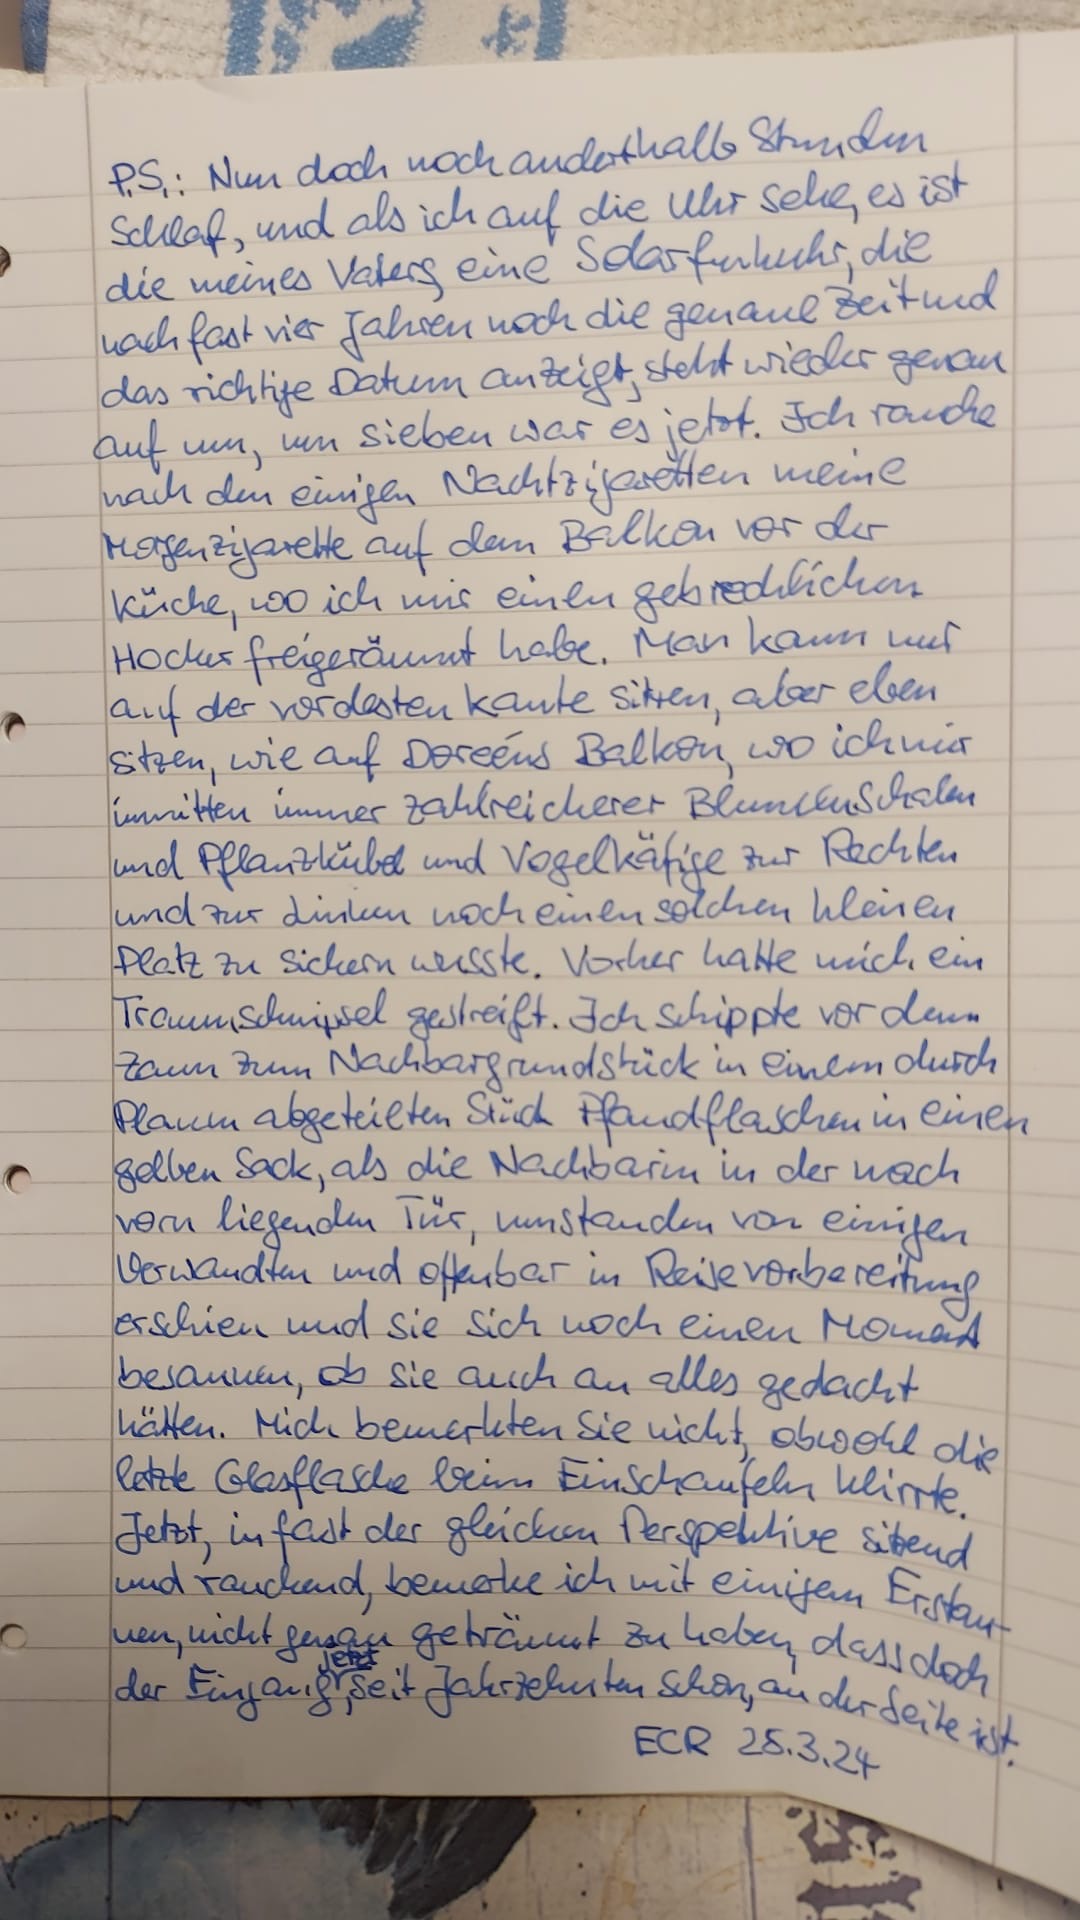 P.S.: Nun doch noch anderthalb Stunden
Schlaf, und als ich auf die Uhr sehe, es ist
die meines Vaters, eine Solarfunkuhr, die
nach fast vier Jahren noch die genaue Zeit und
das richtige Datum anzeigt, steht wieder genau
auf um, um sieben war es jetzt. Ich rauche
nach den einigen Nachtzigaretten meine
Morgenzigarette auf dem Balkon vor der
Küche, wo ich mir einen gebrechlichen
Hocker freigeräumt habe. Man kann nur
auf der vordersten Kante sitzen, aber eben
sitzen, wie auf Doreéns Balkon, wo ich mir
inmitten immer zahlreicherer Blumenschalen
und Pflanzkübel und Vogelkäfige zur Rechten
und zur Linken noch einen solchen kleinen
Platz zu sichern wusste. Vorher hatte mich ein
Traumschnipsel gestreift. Ich schippte vor dem
Zaun zum Nachbargrundstück in einem durch
Planen abgeteilten Stück Pfandflaschen in einen
gelben Sack, als die Nachbarin in der nach
vorn liegenden Tür, umstanden von einigen
Verwandten und offenbar in Reisevorbereitung
erschien und sie sich noch einen Moment
besannen, ob sie auch an alles gedacht
hätten. Mich bemerkten Sie nicht, obwohl die
letzte Glasflasche beim Einschaufeln klirrte.
Jetzt, in fast der gleichen Perspektive sitzend
und rauchend, bemerke ich mit einigem Erstau-
nen, nicht genau geträumt zu haben, dass doch
jetzt
der Eingang, seit Jahrzehnten schon, an der Seite ist.
ECR 25.3.24